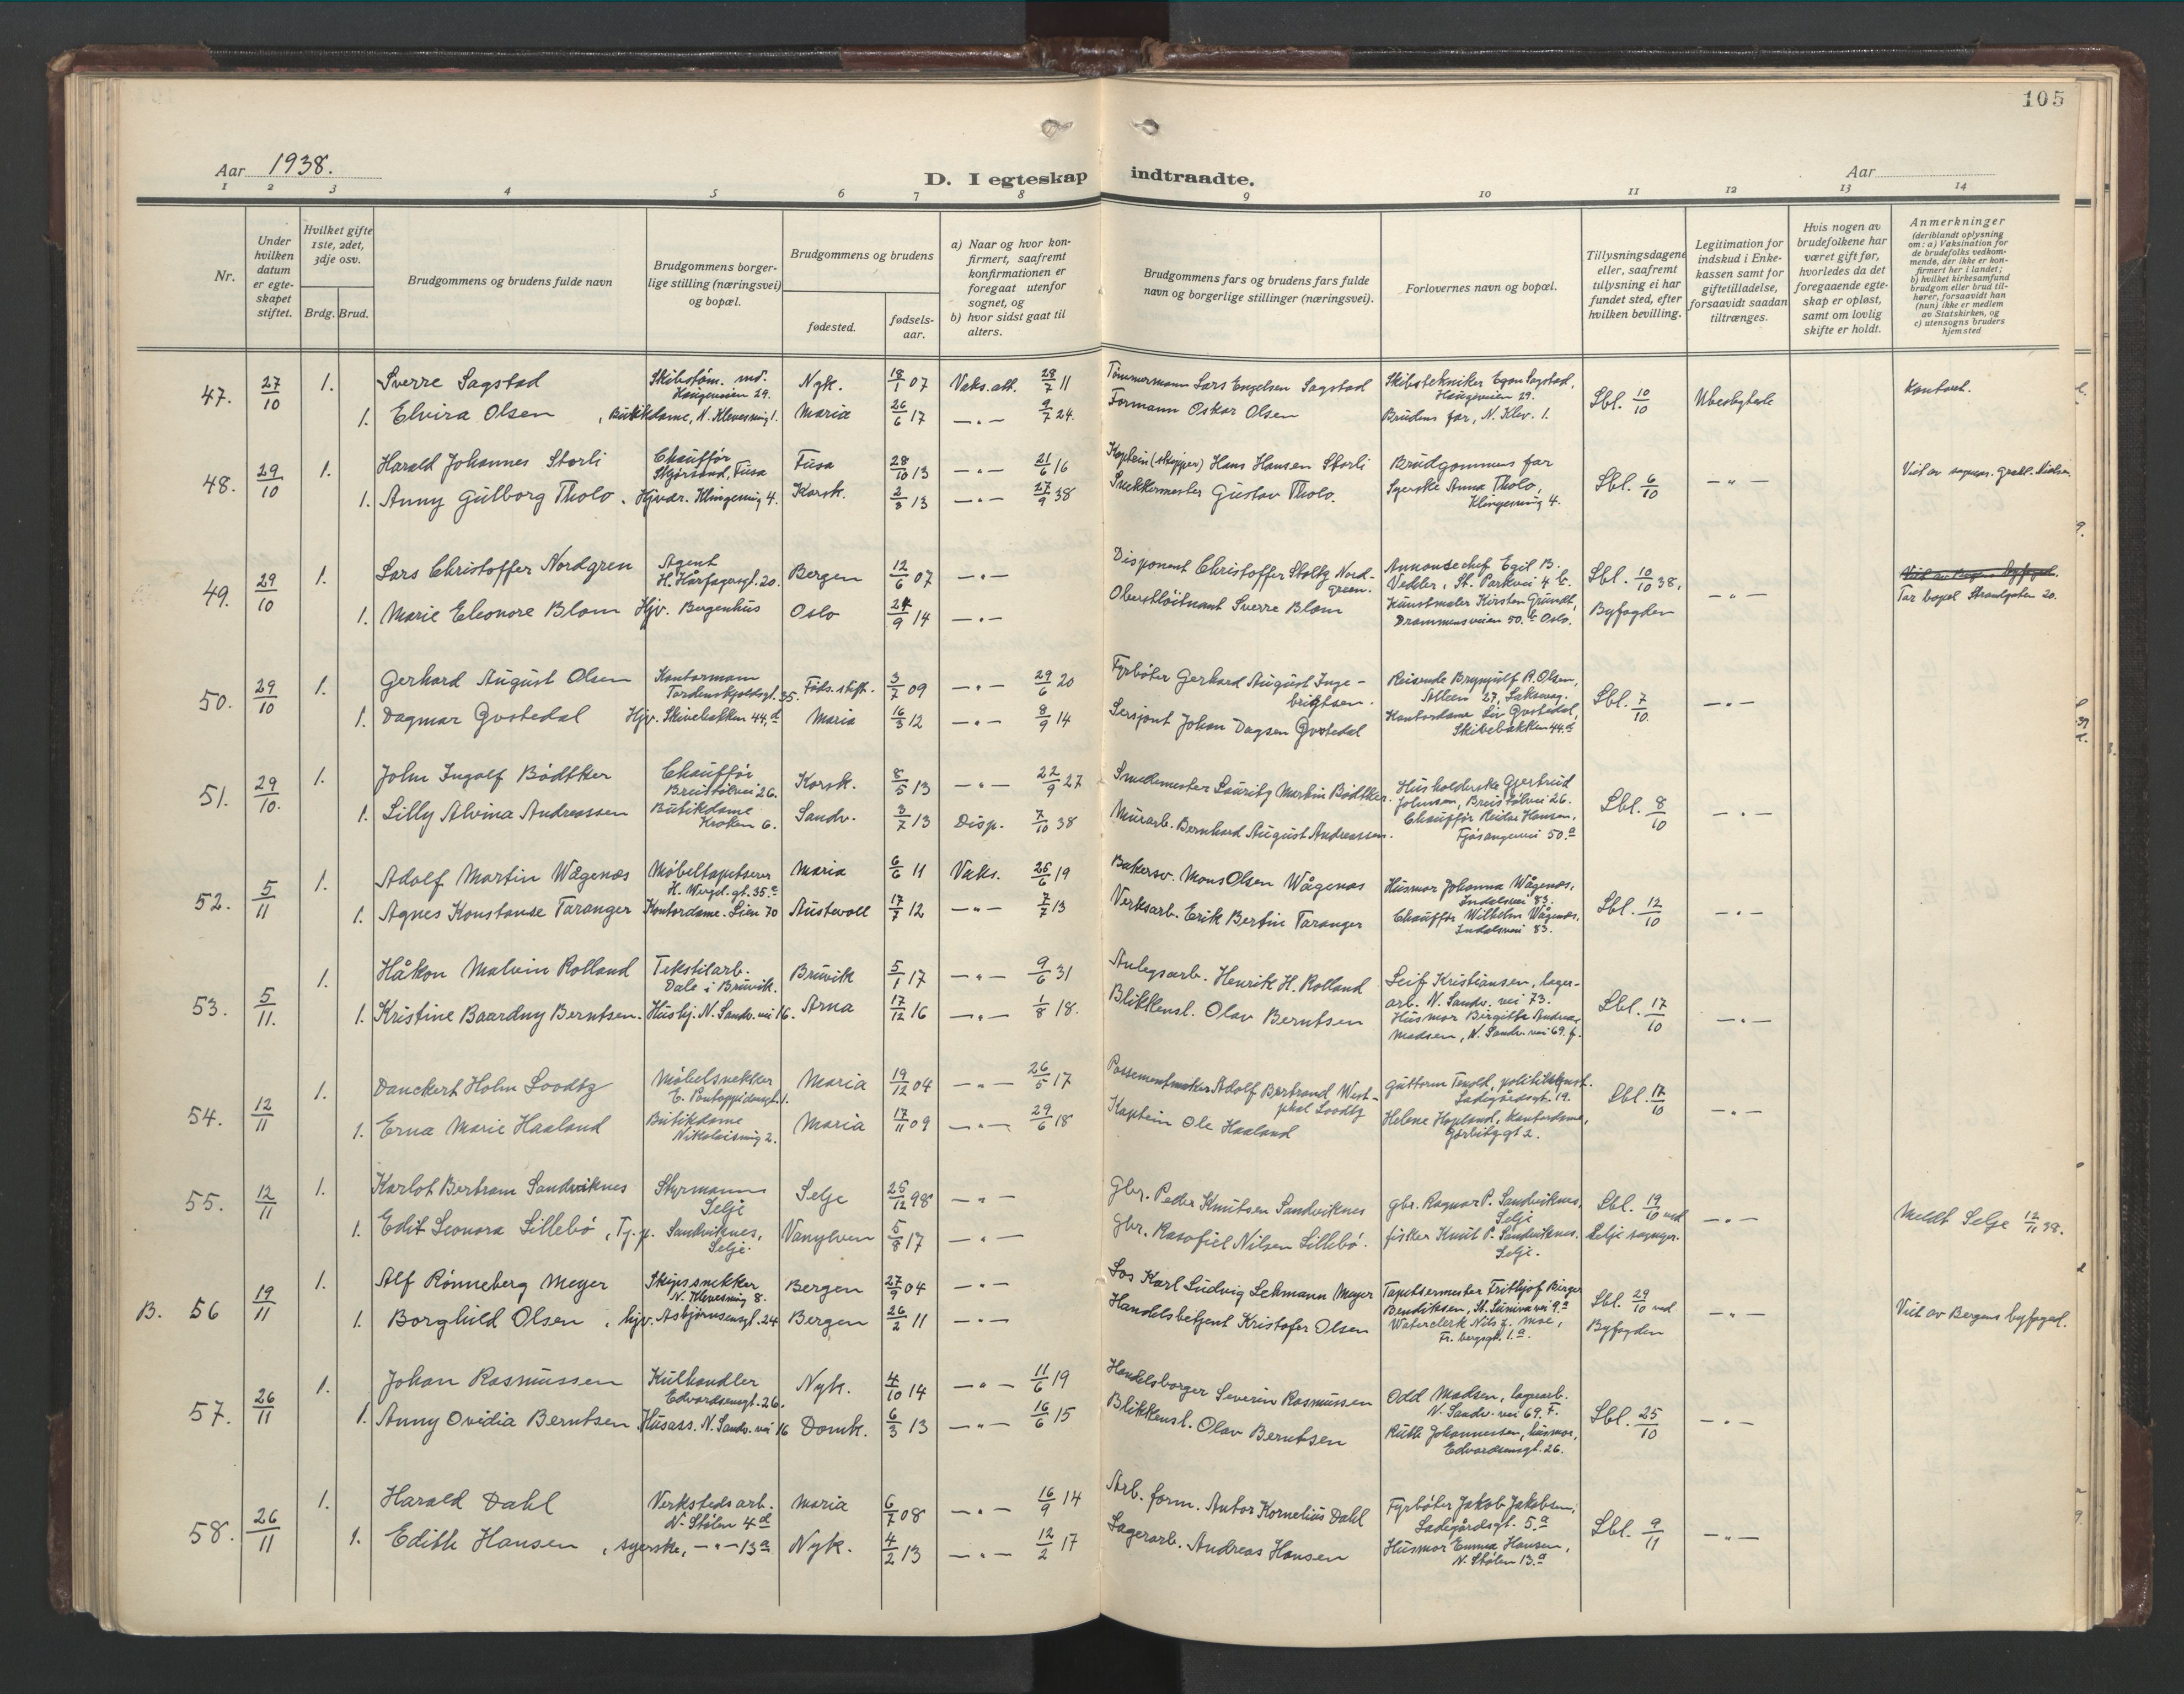 105
Aar 1938.
D. I egteskap indtraadte.
Aar
1 2 3 4 5 6 7 8 9 10 11 12 13 14
Nr.
Under hvilken datum er egteskapet stiftet.
Hvilket gifte 1ste, 2det, 3dje osv.
Brdg. Brud.
Brudgommens og brudens fulde navn
Brudgommens borgerlige stilling (næringsvei) og bopæl.
Brudgommens og brudens
fødested.
fødselsaar.
a) Naar og hvor konfirmert, saafremt konfirmationen er foregaat utenfor sognet, og
b) hvor sidst gaat til alters.
Brudgommens fars og brudens fars fulde navn og borgerlige stillinger (næringsvei).
Forlovernes navn og bopæl.
Tillysningsdagene eller, saafremt tillysning ei har fundet sted, efter hvilken bevilling.
Legitimation for indskud i Enkekassen samt for giftetilladelse, forsaavidt saadan tiltrænges.
Hvis nogen av brudefolkene har været gift før, hvorledes da det foregaaende egteskap er opløst, samt om lovlig skifte er holdt.
Anmerkninger
(deriblandt oplysning om: a) Vaksination for de brudefolks vedkommende, der ikke er konfirmert her i landet; b) hvilket kirkesamfund brudgom eller brud tilhører, forsaavidt han (hun) ikke er medlem av Statskirken, og c) utensogns bruders hjemsted
47. 27/10 1. Sverre Sagstad Skibstøm. md. Haugeveien 29. Nyk. 18/1 07 Vaks. att. 28/7 11 Tømmermann Lars Engelsen Sagstad Skibstekniker Egon Sagstad, Haugeveien 29. Lbl. 10/10 Ubeskyttede Kontoret.
1. Elvira Olsen, Butikdame, N. Klevesmug 1. Maria 26/6 17 — " — 9/7 24. Formann Oskar Olsen Brudens far, N. Klev. 1.
48. 29/10 1. Harald Johannes Storli Chauffør Fusa 28/10 13 — " — 21/6 16 Kaptein (skipper) Hans Hansen Storli Brudgommens far Lbl. 6/10 — " —
1. Anny Gulborg Tholo. Hjvær. Klingesmug 4. Korsk. 2/3 13 — " — 27/9 38 Snekkermester Gustav Tholo. Syerske Anna Tholo, Klingesmug 4.
49. 29/10 1. Lars Christoffer Nordgren Agent H. Hårfagersgt. 20. Bergen 12/6 07 — " — Disponent Christoffer Stoltz Nordgreen. Annonsechef Egil B. Vedeler, St. Parkvei 4 b. Lbl. 10/10 38, — " — Tar bopel Strandgaten 20.
1. Marie Eleonore Blom Hjv. Bergenhus Oslo 24/9 14 — " — Oberstløitnant Sverre Blom Kunstmaler Kirsten Grundt, Drammensveien 50. b Oslo. Byfogden
50. 29/10 1. Gerhard August Olsen Kontormann Tordenskjoldsgt. 35. Føds. stift. 3/7 09 — " — 29/6 20 Fyrbøter Gerhard August Ingebrigtsen. Reisende Brynjulf R. Olsen, Alleen 27, Laksevag. Lbl. 7/10. — " —
1. Dagmar Gvstedal Hjv. Skivebakken 44, d Maria 16/3 12 — " — 8/9 14 Sersjant Johan Dagsen Gvstedal Kontordame Liv Gvstedal, Skivebakken 44 d
51. 29/10. 1. John Ingolf Bødtker Chauffør Breistølvei 26. Korsk. 8/5 13 — " — 22/9 27 Smedemester Lauritz Martin Bødtker. Husholderske Gjertrud Johnsen, Breistølvei 26. Lbl. 8/10 — " —
1. Lilly Alvina Andreassen Butikdame Kroken 6. Sandv. 3/7 13 Disp. 7/10 38 Murarb. Bernhard August Andreassen. Chauffør Reidar Hansen, Fjøsangervei 50. a
52. 5/11 1. Adolf Martin Wågenæs Møbeltapetserer H. Wergl. gt. 35. a Maria 6/6 11 Vaks. 26/6 19 Bakersv. Mons Olsen Wågenæs Husmor Johanna Wågenæs, Indalsvei 83. Lbl. 12/10 — " —
1. Agnes Konstanse Taranger Kontordame. Lien 70 Austevoll 17/7 12 — " — 7/7 13 Verksarb. Erik Bertin Taranger Chauffør Wilhelm Wågenæs, Indalsvei 83.
53. 5/11. 1. Håkon Malvin Rolland Tekstilarb. Dale i Bruvik. Bruvik 5/1 17 — " — 9/6 31 Anlegsarb. Henrik H. Rolland Leif Kristiansen, lagerarb. N. Sandv. vei 73. Lbl. 17/10 — " —
1. Kristine Baardny Berntsen. Hushj. N. Sandv. vei 16. Arna 17/12 16 — " — 1/8 18. Blikkensl. Olav Berntsen Husmor Birgitte Andrea Madsen, N. Sandv. vei 69. f.
54. 12/11 1. Danckert Holm Loodtz Møbelsnekker E. Pontoppidansgt. 1. Maria 19/12 04 — " — 26/5 17 Possementmaker Adolf Bertrand Westphal Loodtz Guttorm Tenold, politikonst. Ladegårdsgt. 19. Lbl. 17/10 — " —
1. Erna Marie Haaland Butikdame Nikolaismug 2. Maria 17/11 09 — " — 29/6 18 Kaptein Ole Haaland Helene Hopland, kontordame, Gørbitzgt 2.
55. 12/11 1. Karlot Bertram Sandviknes Styrmann Selje Selje 25/12 98 — " — Gbr. Peder Knutsen Sandviknes gbr. Ragnar P. Sandviknes, Selje Lbl. 19/10 ved — " — Meldt Selje 12/11 38.
1. Edit Leonora Lillebø, Tj. p. Sandviknes, Selje. Vanylven 5/8 17 — " — Gbr. Rasofiel Nilsen Lillebø. fisker Knut P. Sandviknes. Selje. Selje sogngpr.
B. 56 19/11 1. Alf Rønneberg Meyer Skipssnekker N. Klevesmug 8. Bergen 27/9 04 — " — Los Karl Ludvig Lehmann Meyer Tapetsermester Frithjof Birger Bendiksen, St. Sunivavei 9. a Lbl. 29/10 ved — " — Viet av Bergens byfoged.
1. Borghild Olsen, hjv. Asbjørnsensgt. 24 Bergen 26/2 11 — " — Handelsbetjent Kristofer Olsen Waterclerk Nils Z. Moe, Fr. bergsgt. 1. a. Byfogden
57. 26/11 1. Johan Rasmussen Kulhandler Edvardsensgt. 26. Nyk. 4/10 14 — " — 11/6 19 Handelsborger Severin Rasmussen Odd Madsen, lagerarb. N. Sandv. vei 69. F. Lbl. 25/10 — " —
1. Anny Ovidia Berntsen Husass. N. Sandv. vei 16 Domk. 6/3 13 — " — 16/6 15 Blikkensl. Olav Berntsen Ruth Johannessen, husmor, Edvardsensgt. 26.
58. 26/11 1. Harald Dahl Verkstedsarb. N. Stølen 4 d Maria 6/7 08 — " — 16/9 14 Arb. form. Anton Kornelius Dahl Fyrbøter Jakob Jakobsen, Ladegårdsgt. 5. a Lbl. 9/11 — " —
1. Edith Hansen, syerske, — " — 13 a Nyk. 4/2 13 — " — 12/2 17 Lagerarb. Andreas Hansen Husmor Emma Hansen, N. Stølen 13. a